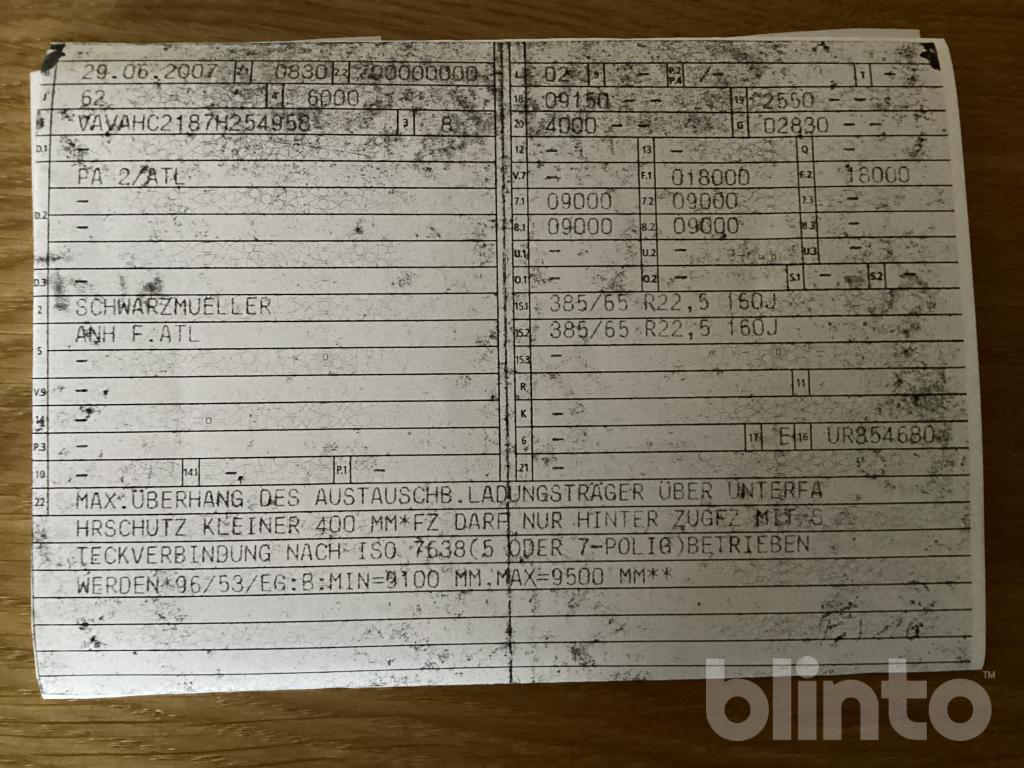 B 29.06.2007 2.1 0830 2.2 700000000 - L 02 9 - P.2 P.4 /- T -
J 62 4 6000 18 09150 -- 19 2550 --
E VAVAHC2187H254958 3 8 20 4000 -- G 02830 --
D.1 - 12 - 13 - Q -
PA 2/ATL V.7 - F.1 018000 F.2 18000
D.2 - 7.1 09000 7.2 09000 7.3 -
- 8.1 09000 8.2 09000 8.3 -
U.1 - U.2 - U.3 -
D.3 - O.1 - O.2 - S.1 - S.2 -
2 SCHWARZMUELLER 15.1 385/65 R22,5 160J
ANH F.ATL 15.2 385/65 R22,5 160J
5 - 15.3 -
V.9 - R - 11
14 - K -
P.3 - 6 - 17 E 16 UR854680
10 - 14.1 - P.1 - 21 -
22 MAX.ÜBERHANG DES AUSTAUSCHB.LADUNGSTRÄGER ÜBER UNTERFA
HRSCHUTZ KLEINER 400 MM*FZ DARF NUR HINTER ZUGFZ MIT S
TECKVERBINDUNG NACH ISO 7638(5 ODER 7-POLIG)BETRIEBEN
WERDEN*96/53/EG:B:MIN=9100 MM.MAX=9500 MM**
blinto™